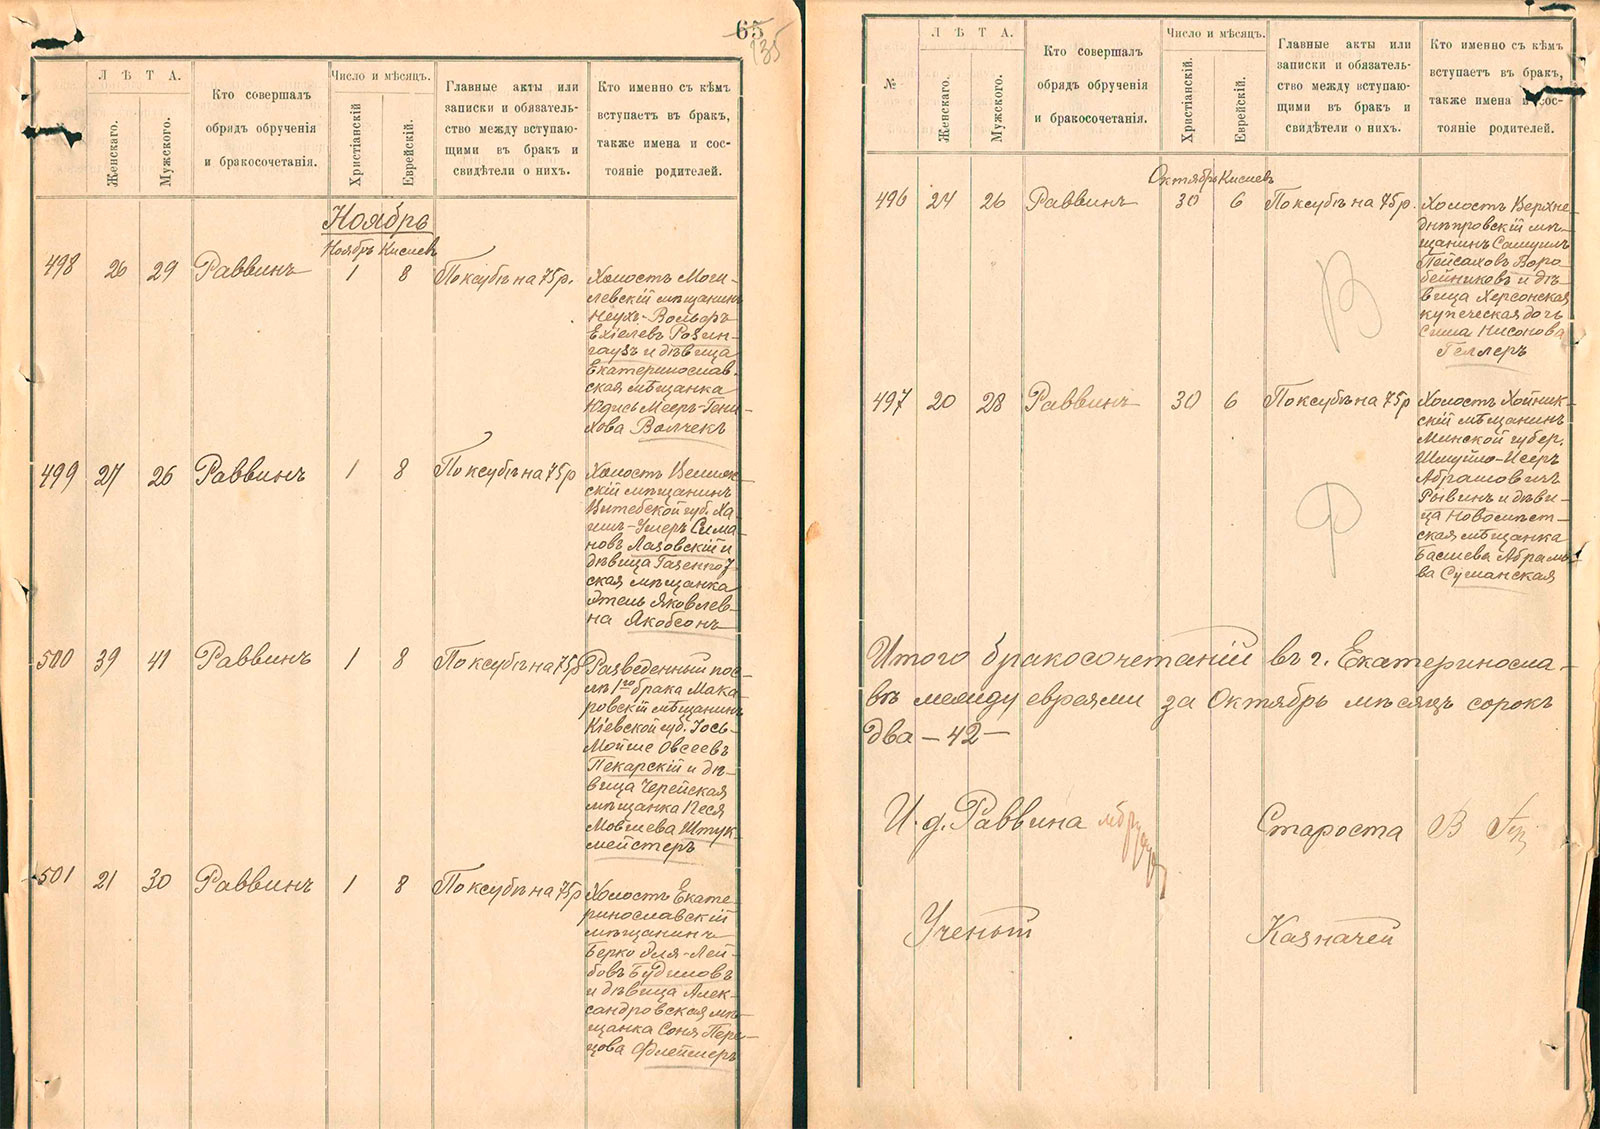 65
135
Л Ѣ Т А.
Женскаго.
Мужского.
Кто совершалъ
обрядъ обрученія
и бракосочетанія.
Число и мѣсяцъ.
Христіанскій
Еврейскій.
Главные акты или
записки и обязатель-
ство между вступаю-
щими въ бракъ и
свидѣтели о нихъ.
Кто именно съ кѣмъ
вступаетъ въ бракъ,
также имена и сос-
тояніе родителей.
Ноябрь
Ноябрь Кислевъ
498 26 29 Раввинъ 1 8 По ксубѣ на 75 р.
Холостъ Моги-
левскій мѣщанинъ
Неухъ-Вольфъ
Ехіелевъ Розин-
гаузъ и дѣвица
Екатеринослав-
ская мѣщанка
Юдись Мееръ-Гени-
хова Волчекъ
499 27 26 Раввинъ 1 8 По ксубѣ на 75 р
Холостъ Велиж-
скій мѣщанинъ
Витебской губ. Ха-
имъ-Умеръ Сима-
новъ Лазовскій и
дѣвица Газенпо7
ская мѣщанка
Этель Яковлев-
на Якобсонъ
500 39 41 Раввинъ 1 8 По ксубѣ на 75 р
Разведенный пос-
лѣ 1го брака Мака-
ровскій мѣщанинъ
Кіевской губ. Іось-
Мойше Овсеевъ
Пекарскій и дѣ-
вица Черейская
мѣщанка Песя
Мовшева Штук-
мейстеръ
501 21 30 Раввинъ 1 8 По ксубѣ на 75 р
Холостъ Екате-
ринославскій
мѣщанинъ
Берко Эля-Лей-
бовъ Будиловъ
и дѣвица Алек-
сандровская мѣ-
щанка Соня Пере-
цова Флеймеръ
№
Л Ѣ Т А.
Женскаго.
Мужского.
Кто совершалъ
обрядъ обрученія
и бракосочетанія.
Число и мѣсяцъ.
Христіанскій.
Еврейскій.
Главные акты или
записки и обязатель-
ство между вступаю-
щими въ бракъ и
свидѣтели о нихъ.
Кто именно съ кѣмъ
вступаетъ въ бракъ,
также имена и сос-
тояніе родителей.
Октябрь Кислевъ
496 24 26 Раввинъ 30 6 По ксубѣ на 75 р.
Холостъ Верхне-
днѣпровскій мѣ-
щанинъ Самуилъ
Пейсаховъ Воро-
бейниковъ и дѣ-
вица Херсонская
купеческая дочь
Сима Нисонова
Геллеръ
В
497 20 28 Раввинъ 30 6 По ксубѣ на 75 р
Холостъ Хойник-
скій мѣщанинъ
Минской губер.
Шмуйло-Исеръ
Абрамовичъ
Рывинъ и дѣви-
ца Новомѣст-
ская мѣщанка
Басшева Абрамо-
ва Суманская
Р
Итого бракосочетаній въ г. Екатериносла-
вѣ между евреями за Октябрь мѣсяцъ сорокъ
два - 42 -
И. д. Раввина
Староста В
Ученый
Казначей